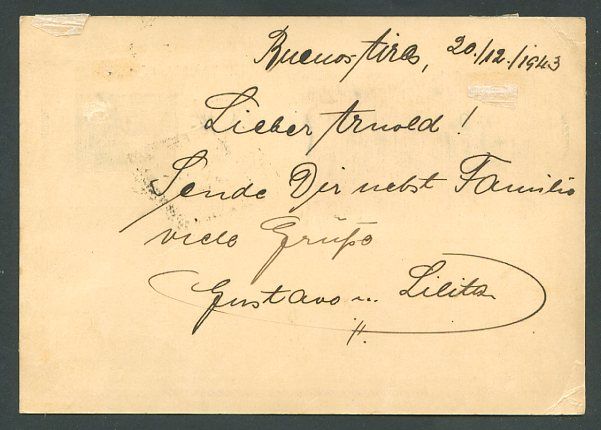 Buenos-Aires, 20./12./1943
Lieber Arnold!
Sende Dir nebst Familie
viele Grüße
Gustavo u. Lilita